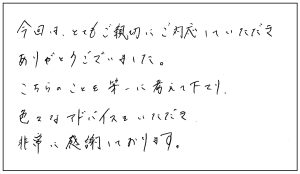 今回は、とてもご親切にご対応していただき
ありがとうございました。
こちらのことを第一に考えて下さり、
色々なアドバイスをいただき
非常に感謝しております。